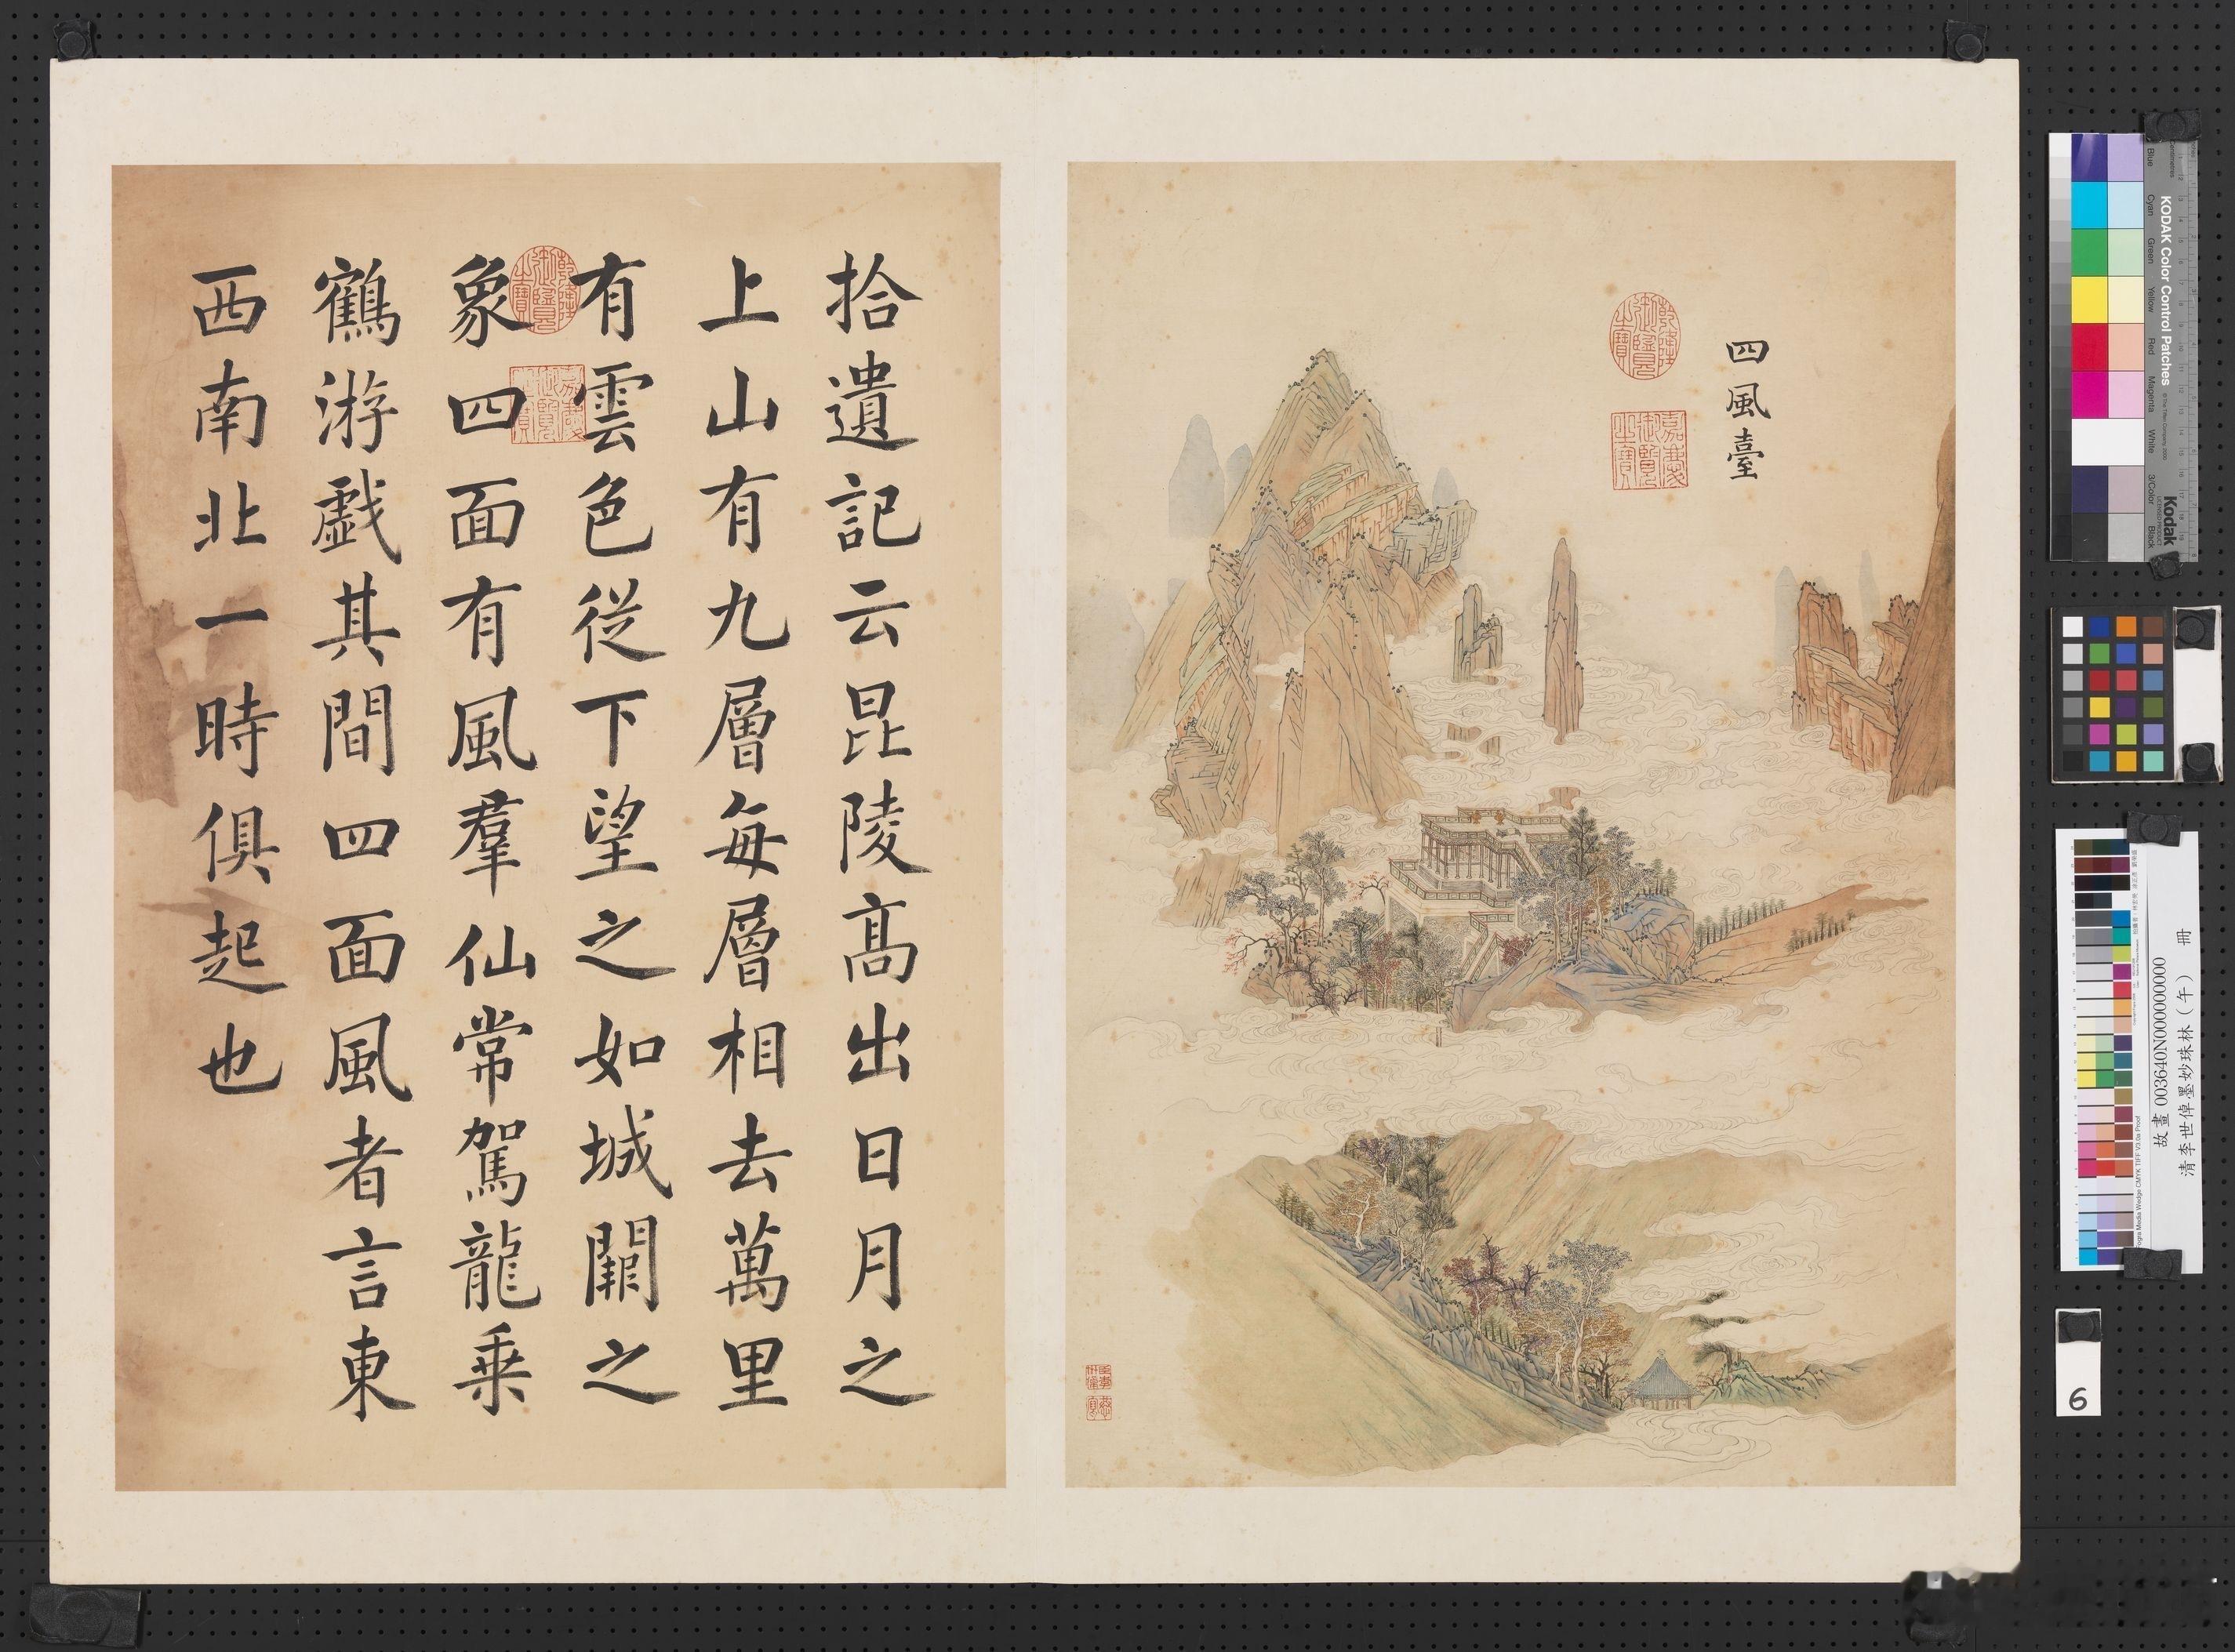 四風臺
乾隆御覽之寶
嘉慶御覽之寶
拾遺記云昆陵高出日月之
上山有九層每層相去萬里
有雲色從下望之如城闕之
象四面有風羣仙常駕龍乘
鶴游戲其間四面風者言東
西南北一時俱起也
乾隆御覽之寶
嘉慶御覽之寶
KODAK Color Control Patches
Kodak
Blue
Cyan
Green
Yellow
Red
Magenta
White
3/Color
Black
故畫 003640N000000000
清李世倬墨妙珠林(午) 冊
6